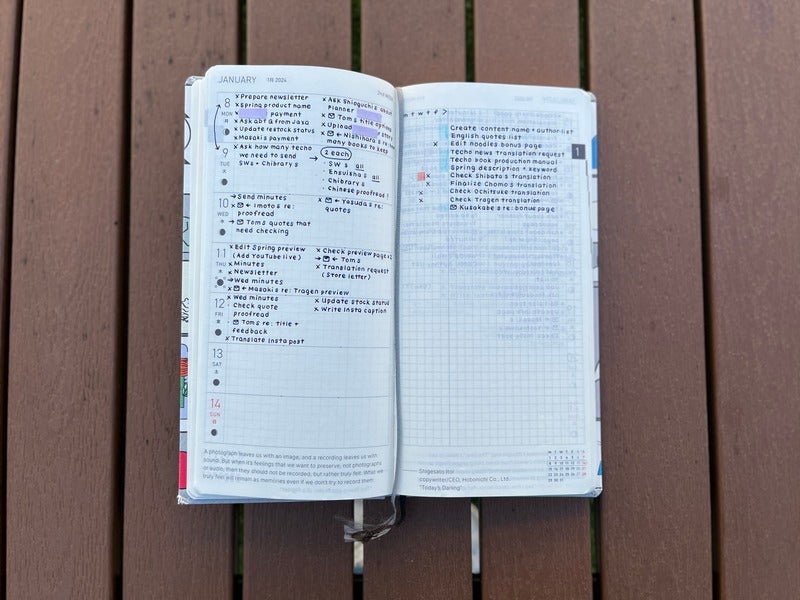 JANUARY 1月 2024
8
MON
x Prepare newsletter
x Spring product name
payment
x Ask abt a from Jaxa
x Update restock status
x Masakis payment
x Ask Shioguchi about
planner
x ✉ Toms title options
x Upload story
x ✉ ← Nishihara's re: how
many books to keep
9
TUE
x Ask how many techo
we need to send
SWs + Chibrary s
→ 2 each
· SW s all
· Ensuisha s all
· Chibrary s
· Chinese proofread!
10
WED
→ Send minutes
x ✉ ← Imoto s re:
proofread
→ ✉ Toms quotes that
need checking
x ✉ ← Yasuda's re:
quotes
11
THU
x Edit Spring preview
(Add YouTube live)
x Minutes
x Newsletter
→ Wed minutes
x ✉ ← Masaki s re: Tragen preview
x Check preview page x2
→ ✉ ← Tom s
x Translation request
(Store letter)
12
FRI
x Wed minutes
· Check quote
proofread
· ✉ Toms re: title +
feedback
x Translate Insta post
x Update stock status
x Write Insta caption
13
SAT
14
SUN
A photograph leaves us with an image, and a recording leaves us with
sound. But when it's feelings that we want to preserve, not photographs
or audio, then they should not be recorded, but rather truly felt. What we
truly felt will remain as memories even if we don't try to record them.
m t w t f >
Create content name + author list
English quotes list
x Edit noodles bonus page
Techo news translation request
Techo book production manual
Spring description + keyword
x Check Shibata's translation
x Finalize Chomo's translation
x Check Ochitsuke translation
x Check Tragen translation
✉ Kusakabe s re: bonus page
1
Shigesato Itoi
copywriter/CEO, Hobonichi Co., Ltd.
"Today's Darling"
M T W T F S S
1 2 3 4 5 6 7
8 9 10 11 12 13 14
15 16 17 18 19 20 21
22 23 24 25 26 27 28
29 30 31